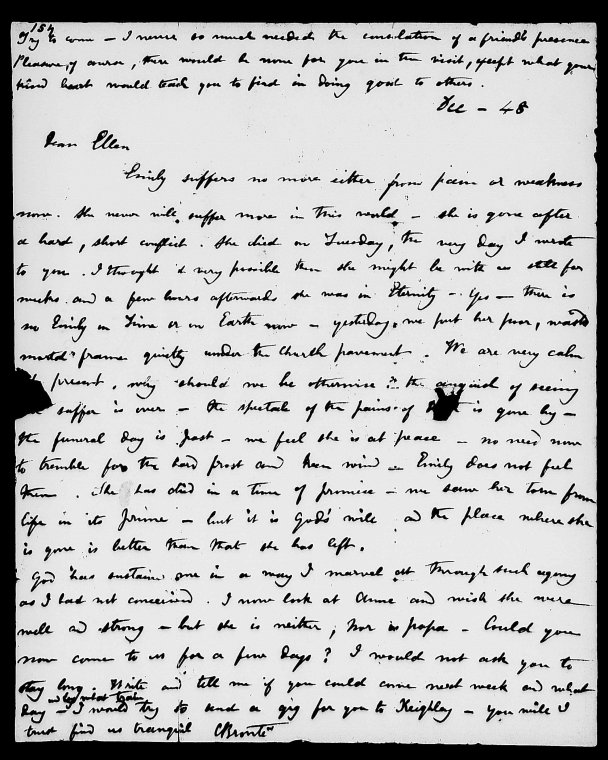 154
Try to come - I never so much needed the consolation of a friend's presence
Pleasure, of course, there would be none for you in the visit, except what your
kind heart would teach you to find in doing good to others.
Dec - 48
Dear Ellen
Emily suffers no more either from pain or weakness
now. She never will suffer more in this world - she is gone after
a hard, short conflict. She died on Tuesday, the very day I wrote
to you. I thought it very possible then she might be with us still for
weeks and a few hours afterwards she was in Eternity - Yes - there is
no Emily in Time or on Earth now - yesterday, we put her poor, wasted
mortal frame quietly under the Church pavement. We are very calm
present, why should we be otherwise? the anguish of seeing
suffer is over - the spectacle of the pains of is gone by -
the funeral day is past - we feel she is at peace - no need now
to tremble for the hard frost and keen wind - Emily does not feel
them. She has died in a time of promise - we saw her torn from
life in its prime - but it is God's will and the place where she
is gone is better than that she has left.
God has sustained me in a way I marvel at through such agony
as I had not conceived. I now look at Anne and wish she were
well and strong - but she is neither, nor is papa - Could you
now come to us for a few days? I would not ask you to
stay long. Write and tell me if you could come next week and what
by what train
day - I would try to send a gig for you to Keighley - you will I
trust find us tranquil CBrontë